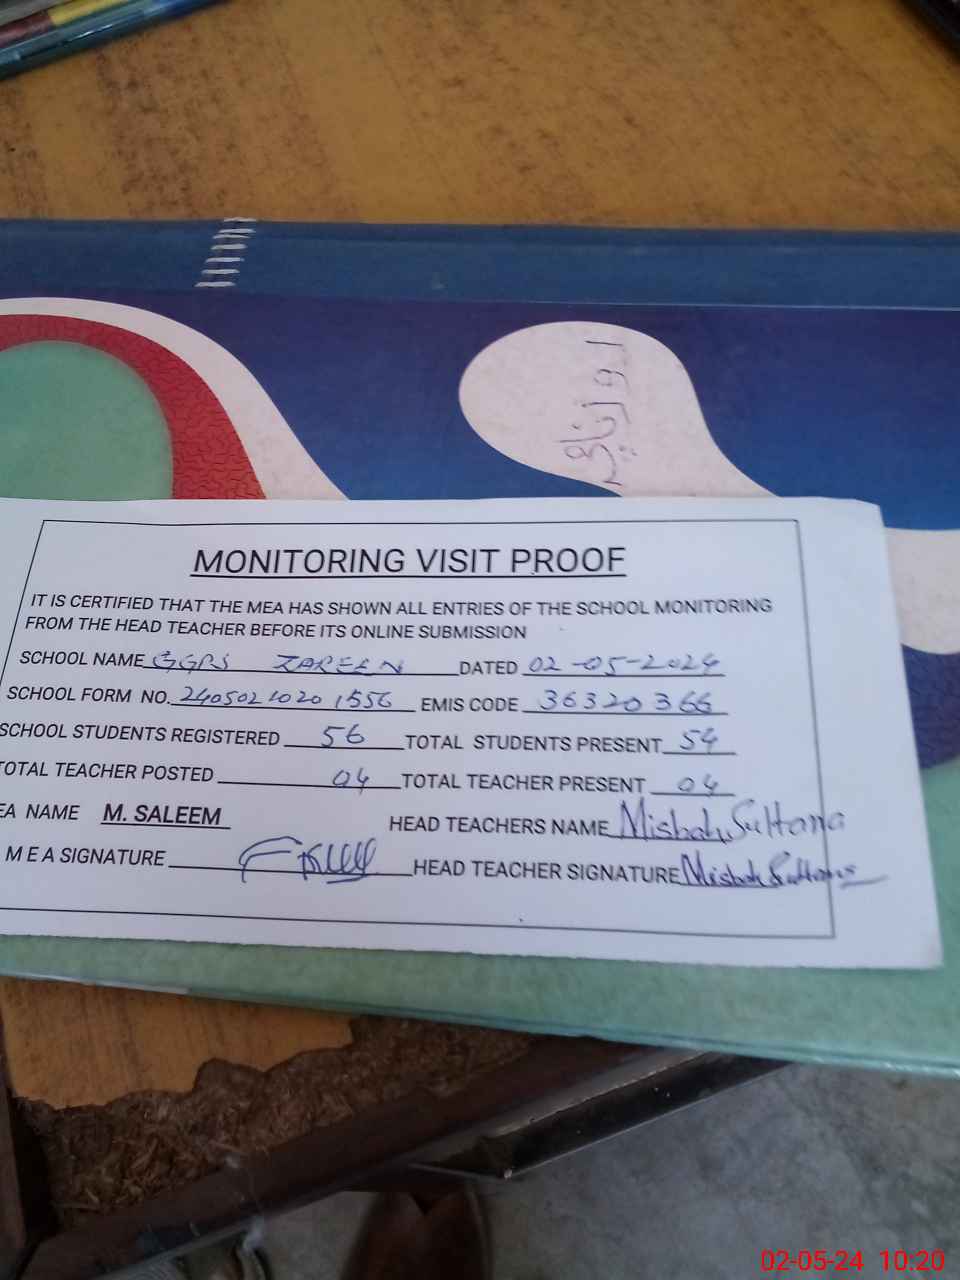 MONITORING VISIT PROOF
IT IS CERTIFIED THAT THE MEA HAS SHOWN ALL ENTRIES OF THE SCHOOL MONITORING
FROM THE HEAD TEACHER BEFORE ITS ONLINE SUBMISSION
SCHOOL NAME GGPS ZAREEN DATED 02-05-2024
SCHOOL FORM NO. 2405021020 1556 EMIS CODE 36320366
SCHOOL STUDENTS REGISTERED 56 TOTAL STUDENTS PRESENT 54
TOTAL TEACHER POSTED 04 TOTAL TEACHER PRESENT 04
EA NAME M. SALEEM HEAD TEACHERS NAME Misbah Sultana
M E A SIGNATURE HEAD TEACHER SIGNATURE Misbah Sultana
02-05-24 10:20